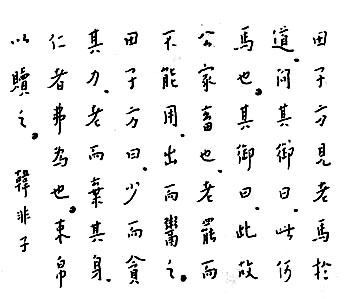 田子方見老馬於
道。問其御曰。此何
馬也。其御曰。此故
公家畜也。老罷而
不能用。出而鬻之。
田子方曰。少而貪
其力。老而棄其身。
仁者弗為也。束帛
以贖之。 韓非子